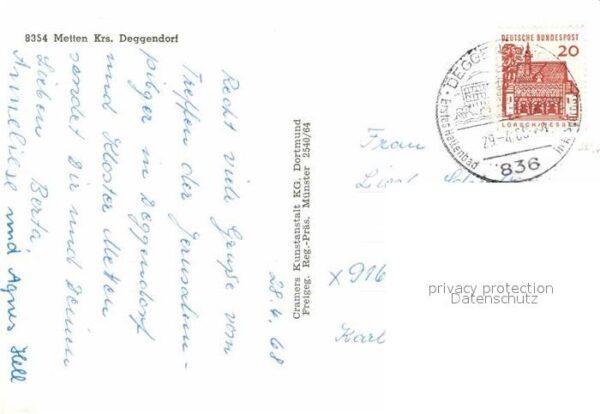 8354 Metten Krs. Deggendorf
28.4.68
Recht viele Grüße vom
Treffen der Jerusalem-
pilger in Deggendorf
und Kloster Metten
sendet Dir und Deinen
Lieben Berta,
Anneliese und Agnes Hell
Cramers Kunstanstalt KG. Dortmund
Freigeg. Reg.-Präs. Münster 2540/64
DEUTSCHE BUNDESPOST
20
LORSCH/HESSEN
DEGGE
Erstes Hallenbad
29.-4.68
836
Frau
X 916
Karl
privacy protection
Datenschutz